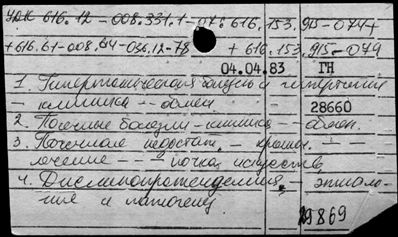 УДК 616.12 - 008.331.1-07: 616.153.915-074+
+616.61-008.64-036.12-78 + 616.153.915-079
04.04.83 ГН
1. Гипертоническая болезнь и гипертензии
- клиника - обмен
28660
2. Почечные болезни - клиника -
3. Почечная недостат. - хронич. -
лечение - почка искусств.
4. Дислипопротеидемия - этиоло-
гия и патогенез
19869